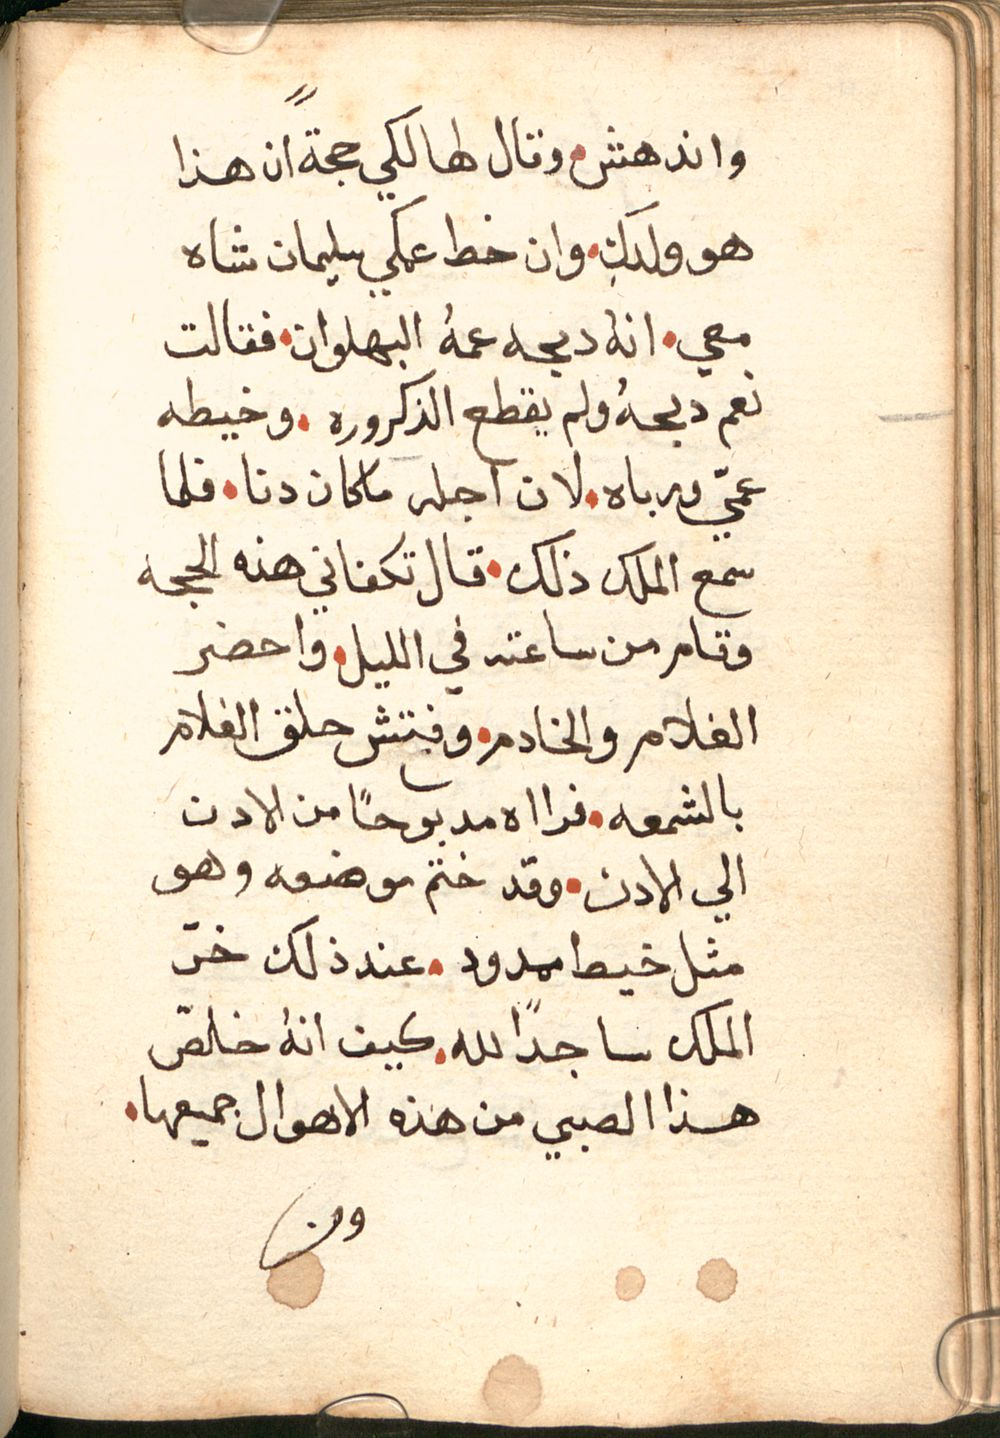 واندهش • وقال لها لكي حجةً ان هذا
هو ولدكِ • وان خط عمكي سليمان شاه
معي • انهُ دبحه عمهُ البهلوان • فقالت
نعم دبحهُ ولم يقطع الذكروره • وخيطه
عمّي ورباه • لان اجله ماكان دنا • فلما
سمع الملك ذلك • قال تكفاني هذه الحجه
وقام من ساعته في الليل • واحضر
الغلام والخادم • وفتش حلق الغلام
بالشمعه • فرااه مدبوحًا من الادن
الي الادن • وقد ختم موضعه وهو
مثل خيط ممدود • عند ذلك خرّ
الملك ساجدًا لله • كيف انهُ خلصّ
هذا الصبي من هذه الاهوال جميعها •
ومن